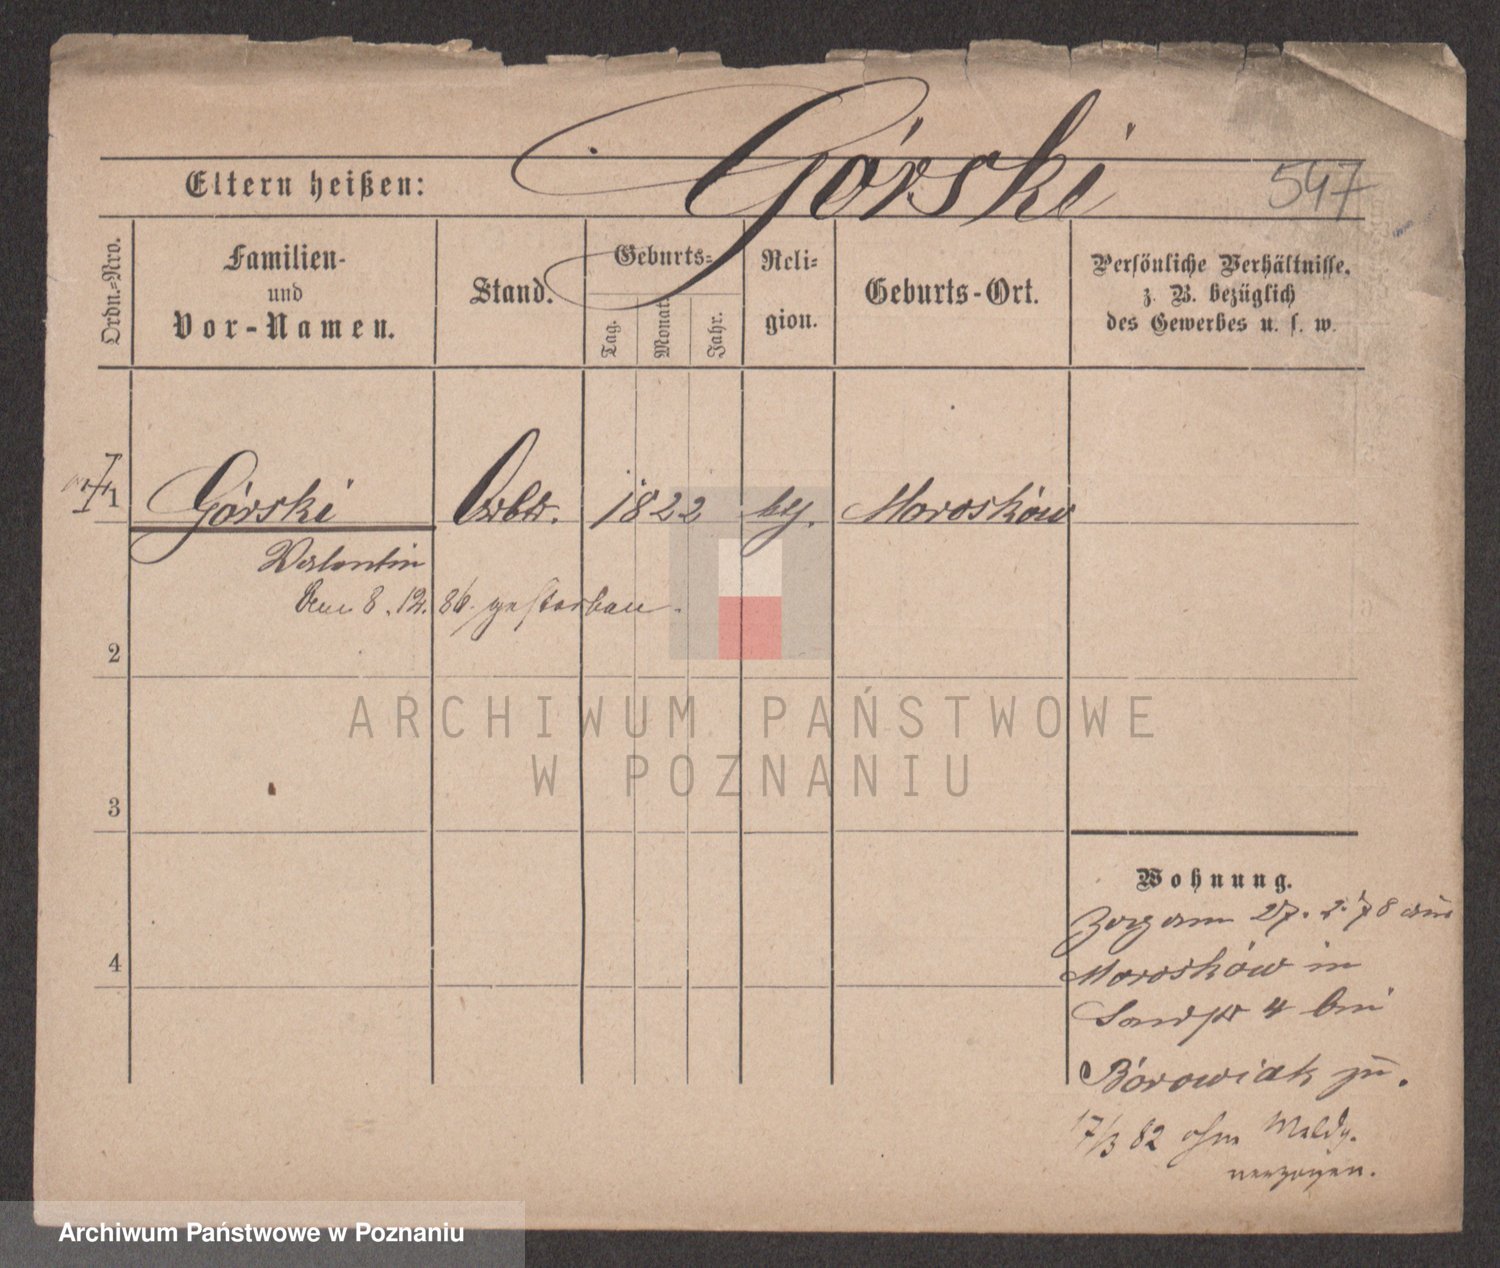 Górski
547
Eltern heißen:
Ordn.=Nro.
Familien-
und
Vor-Namen.
Stand.
Geburts=
Tag.
Monat.
Jahr.
Reli=
gion.
Geburts-Ort.
Persönliche Verhältnisse,
z. B. bezüglich
des Gewerbes u. s. w.
1
Górski
1822
Moroskow
Valentin
den 8. 12. 86. gestorben.
2
ARCHIWUM PAŃSTWOWE
W POZNANIU
3
Wohnung.
Zog am 27. 2. 78 aus
Moroskow in
4 bei
4
Borowiak zu.
17/3 82 ohne Meldg.
verzogen.
Archiwum Państwowe w Poznaniu